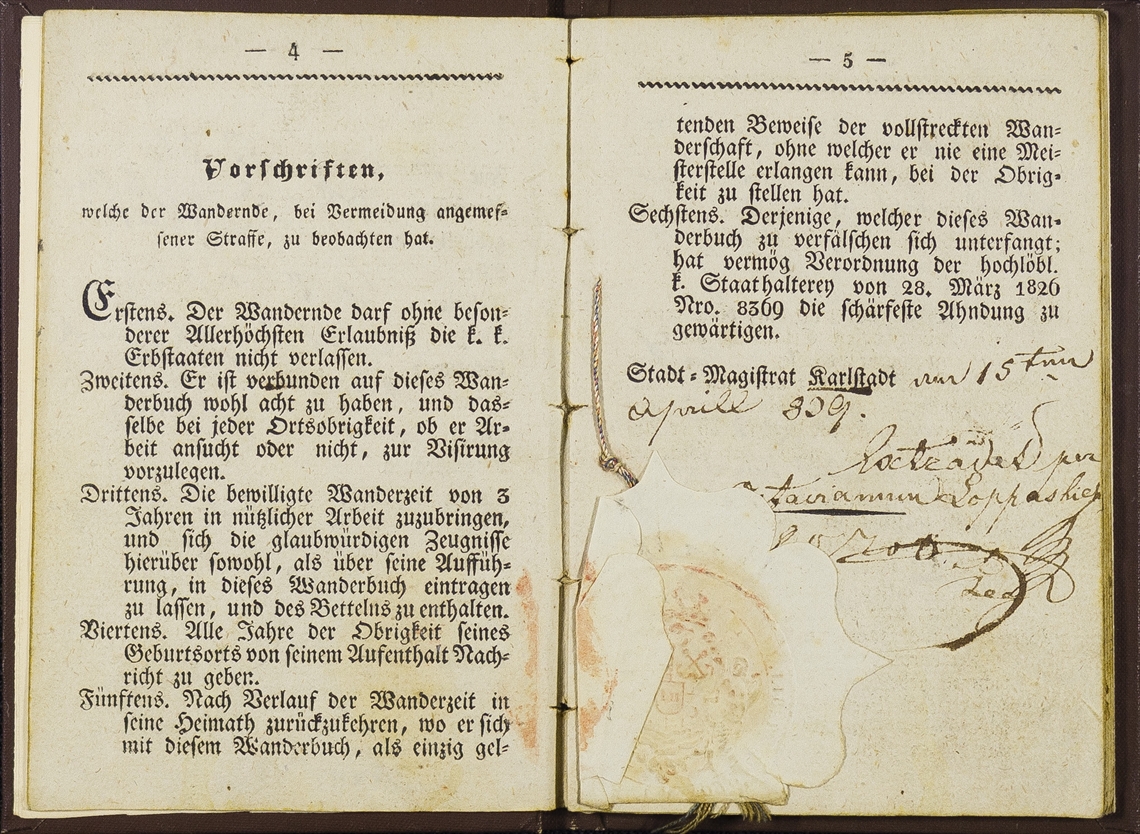 — 4 —
Vorschriften,
welche der Wandernde, bei Vermeidung angemes-
sener Straffe, zu beobachten hat.
Erstens. Der Wandernde darf ohne beson-
derer Allerhöchsten Erlaubniß die k. k.
Erbstaaten nicht verlassen.
Zweitens. Er ist verbunden auf dieses Wan-
derbuch wohl acht zu haben, und das-
selbe bei jeder Ortsobrigkeit, ob er Ar-
beit ansucht oder nicht, zur Visirung
vorzulegen.
Drittens. Die bewilligte Wanderzeit von 3
Jahren in nützlicher Arbeit zuzubringen,
und sich die glaubwürdigen Zeugnisse
hierüber sowohl, als über seine Auffüh-
rung, in dieses Wanderbuch eintragen
zu lassen, und des Bettelns zu enthalten.
Viertens. Alle Jahre der Obrigkeit seines
Geburtsorts von seinem Aufenthalt Nach-
richt zu geben.
Fünftens. Nach Verlauf der Wanderzeit in
seine Heimath zurückzukehren, wo er sich
mit diesem Wanderbuch, als einzig gel-
— 5 —
tenden Beweise der vollstreckten Wan-
derschaft, ohne welcher er nie eine Mei-
sterstelle erlangen kann, bei der Obrig-
keit zu stellen hat.
Sechstens. Derjenige, welcher dieses Wan-
derbuch zu verfälschen sich unterfangt;
hat vermög Verordnung der hochlöbl.
k. Staathalterey von 28. März 1826
Nro. 8369 die schärfeste Ahndung zu
gewärtigen.
Stadt-Magistrat Karlstadt am 15ten
Aprill 839.
Extradet per